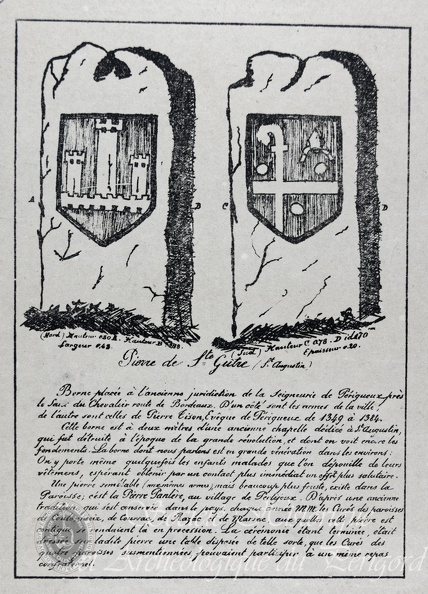 A
D
C
D
(Nord) Hauteur
Largeur 0.48.
(Sud) Hauteur C 0.78. D id 0.70
Epaisseur 0.20.
Pierre de Ste Gutre (St Augustin)
Borne placée à l'ancienne juridiction de la Seigneurie de Périgueux, près
le Saut du Chevalier route de Bordeaux. D'un côté sont les armes de la ville;
de l'autre sont celles de Pierre Tizon, évêque de Périgueux de 1349 à 1384.
Cette borne est à deux mètres d'une ancienne chapelle dédiée à St Augustin,
qui fut détruite à l'époque de la grande révolution, et dont on voit encore les
fondements. La borne dont nous parlons est en grande vénération dans les environs.
On y porte même quelquefois les enfants malades que l'on dépouille de leurs
vêtements, espérant obtenir par un contact plus immédiat un effet plus salutaire.
Une pierre semblable (aux mêmes armes) mais beaucoup plus fruste, existe dans la
Paroisse; c'est la Pierre au village de D'après une ancienne
tradition qui s'est conservée dans le pays, chaque année M.M. les Curés des paroisses
de de Coursac, de Razac et de Marsac, aux quelles cette pierre est
se rendaient là en procession. La cérémonie étant terminée, était
dressée sur ladite pierre une table disposée de telle sorte, que les Curés des
quatre paroisses susmentionnées pouvaient participer à un même repas
Archéologique du Périgord